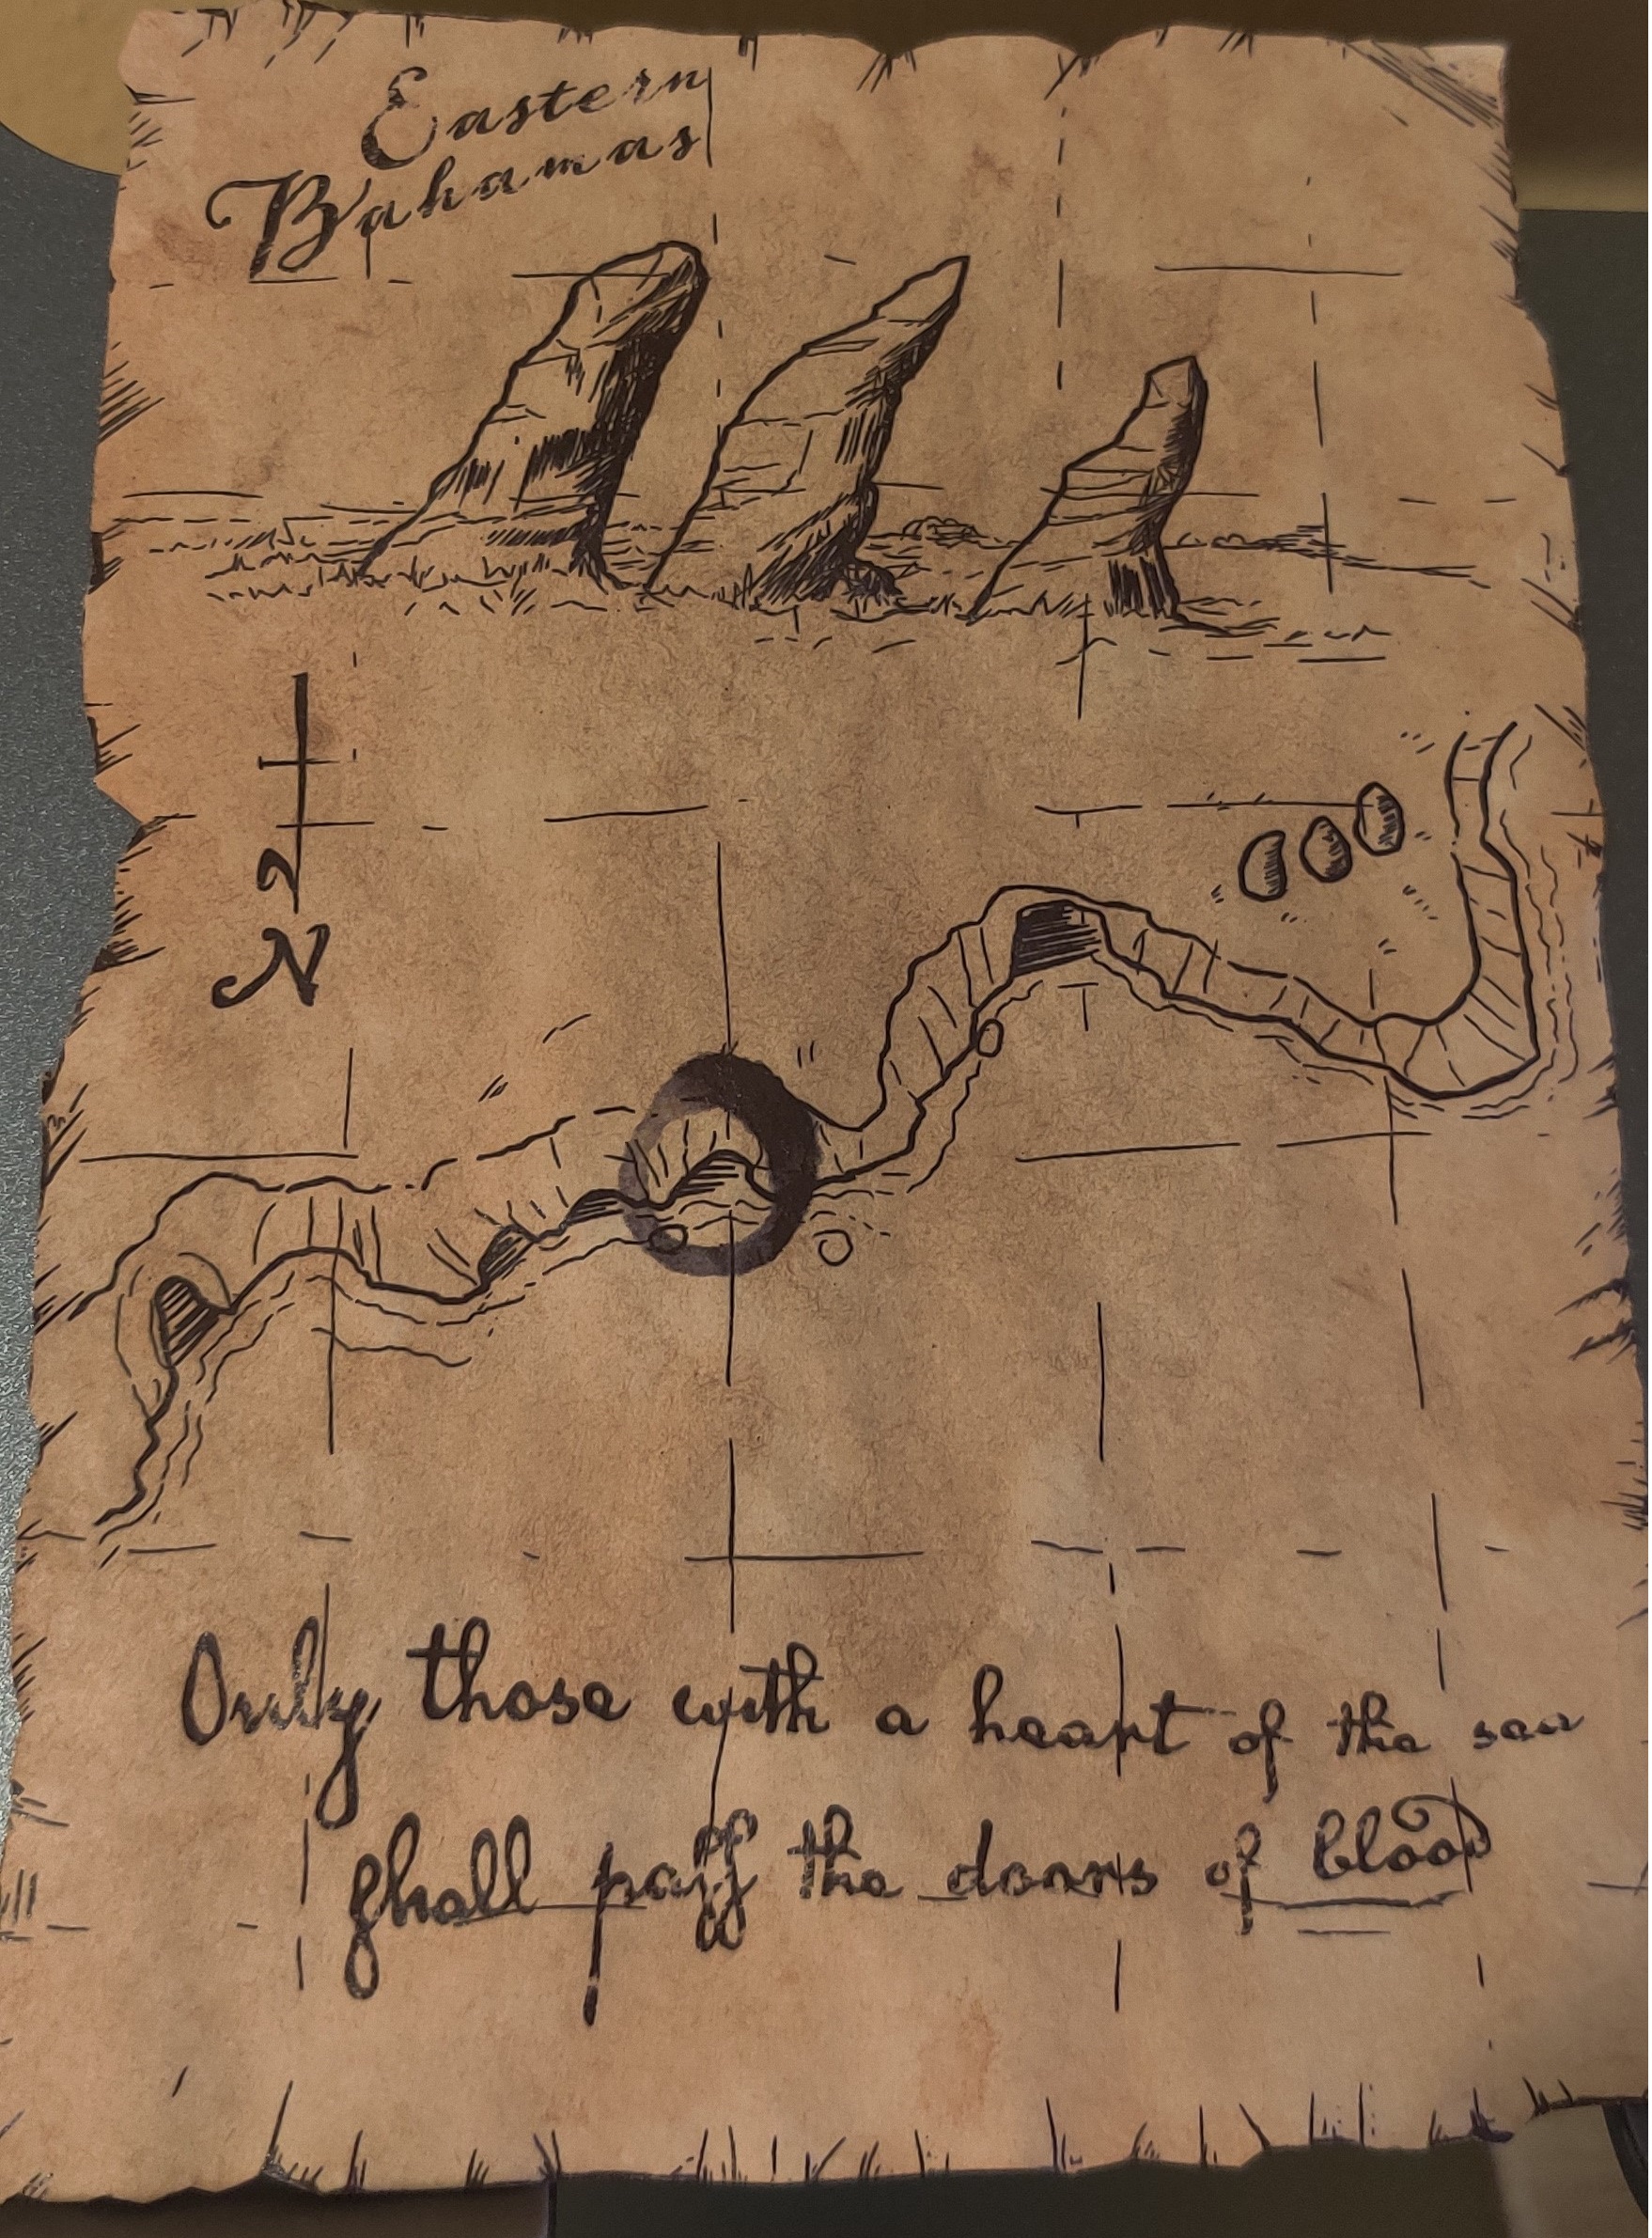 Eastern
Bahamas
N
Only those with a heart of the sea
ſhall paſſ the doors of blood